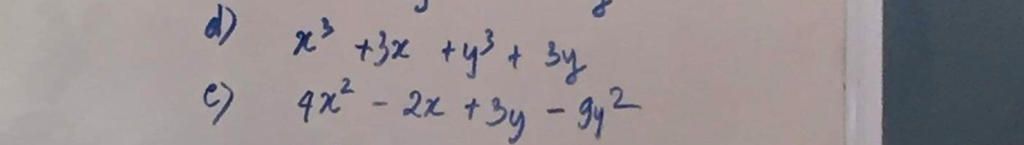 d) x³ + 3x + y³ + 3y
e) 4x² - 2x + 3y - 9y²